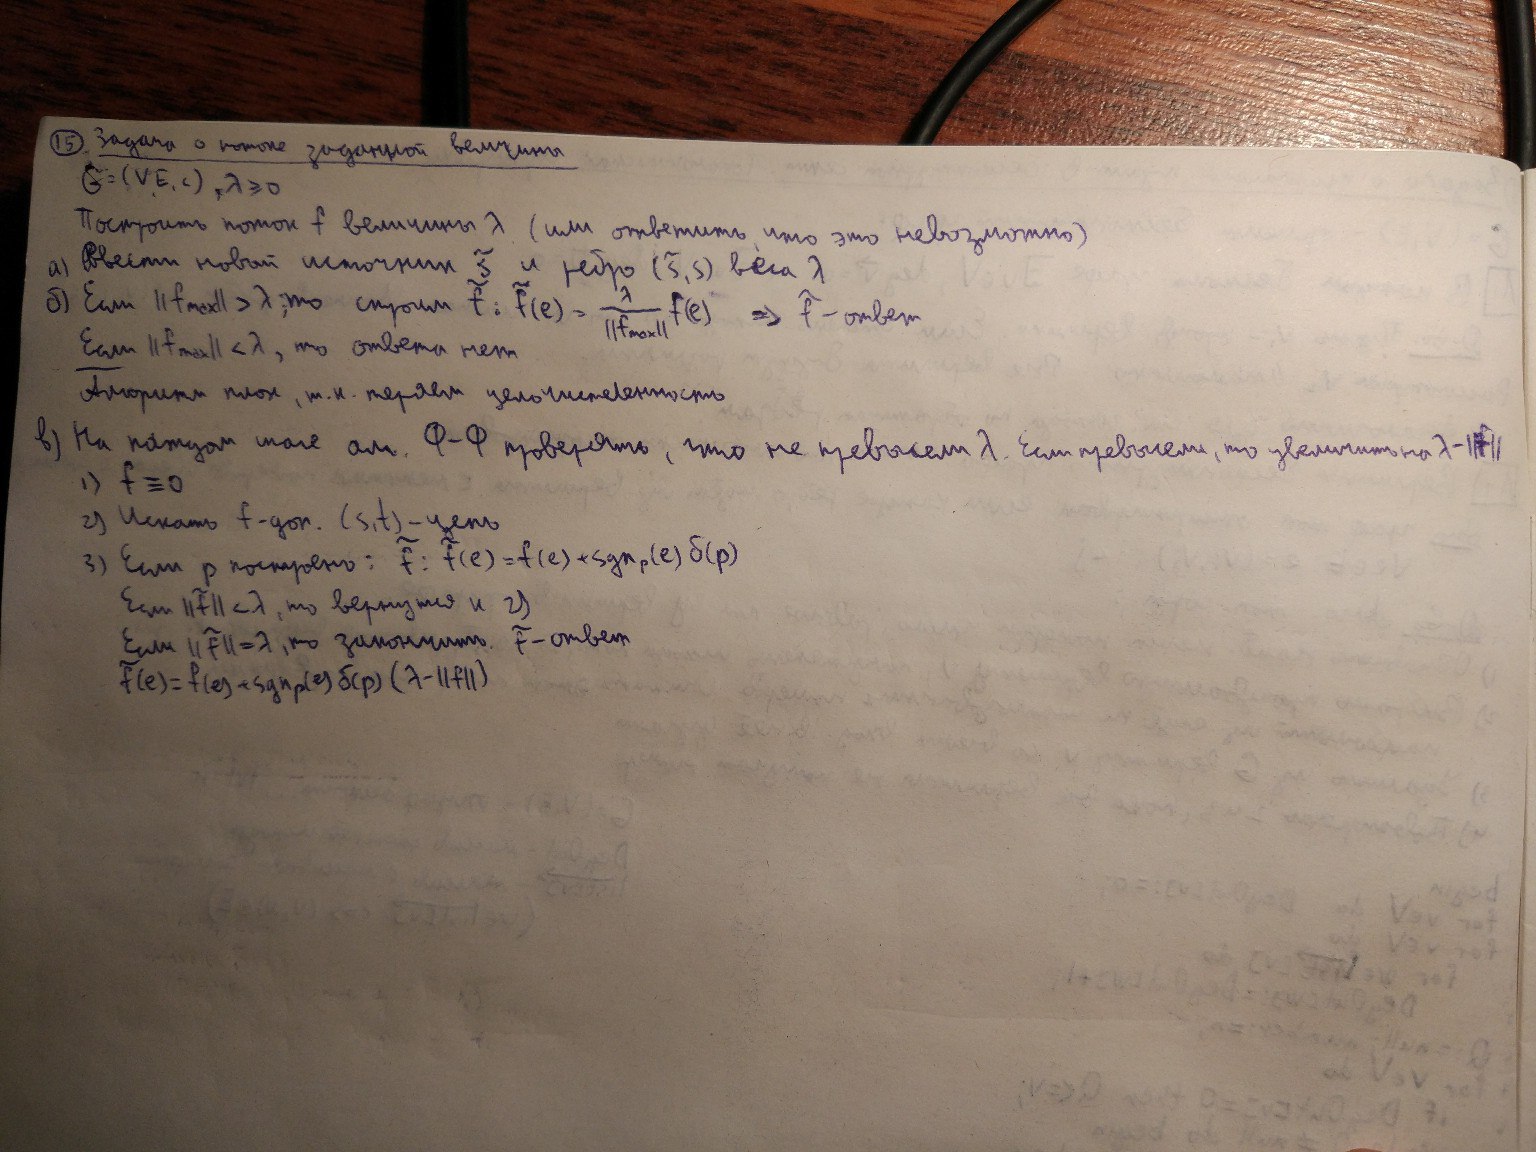 15 Задача о потоке заданной величины
G⃗=(V,E,c), λ≥0
Построить поток f величины λ (или ответить, что это невозможно)
а) Ввести новый источник s̃ и ребро (s̃,s) веса λ
б) Если ||fmax||>λ, то строим f̃: f̃(e) = λ/||fmax|| f(e) ⇒ f̃ - ответ
Если ||fmax||<λ, то ответа нет
Алгоритм плох, т.к. теряем целочисленность
в) На каждом шаге алг. Ф-Ф проверять, что не превысили λ. Если превысили, то увеличить на λ-||f||
1) f≡0
2) Искать f-доп. (s,t)-цепь
3) Если p построено: f̃: f̃(e)=f(e)+sgnₚ(e)δ(p)
Если ||f̃||<λ, то вернуться к 2)
Если ||f̃||=λ, то закончить. f̃ - ответ
f̃(e)=f(e)+sgnₚ(e)δ(p)(λ-||f||)